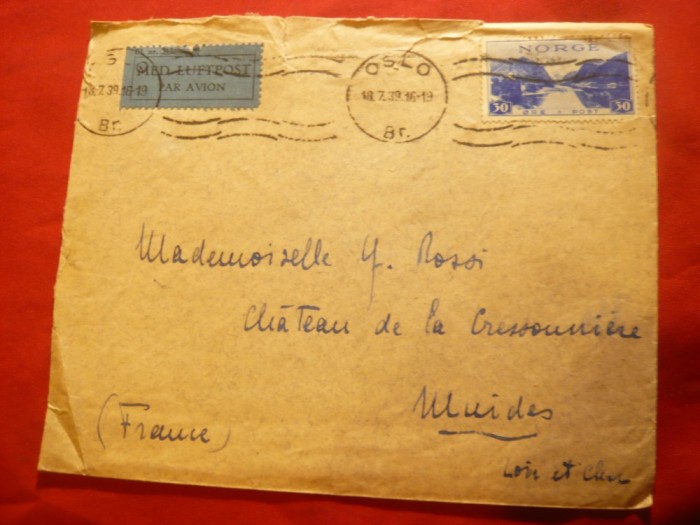 MED LUFTPOST
PAR AVION
18.7.39.16-19
Br.
OSLO
18.7.39.16-19
Br.
NORGE
30 30
ØRE POST
Mademoiselle Y. Rossi
Château de la Cressonnière
Muides
(France)
Loir et Cher